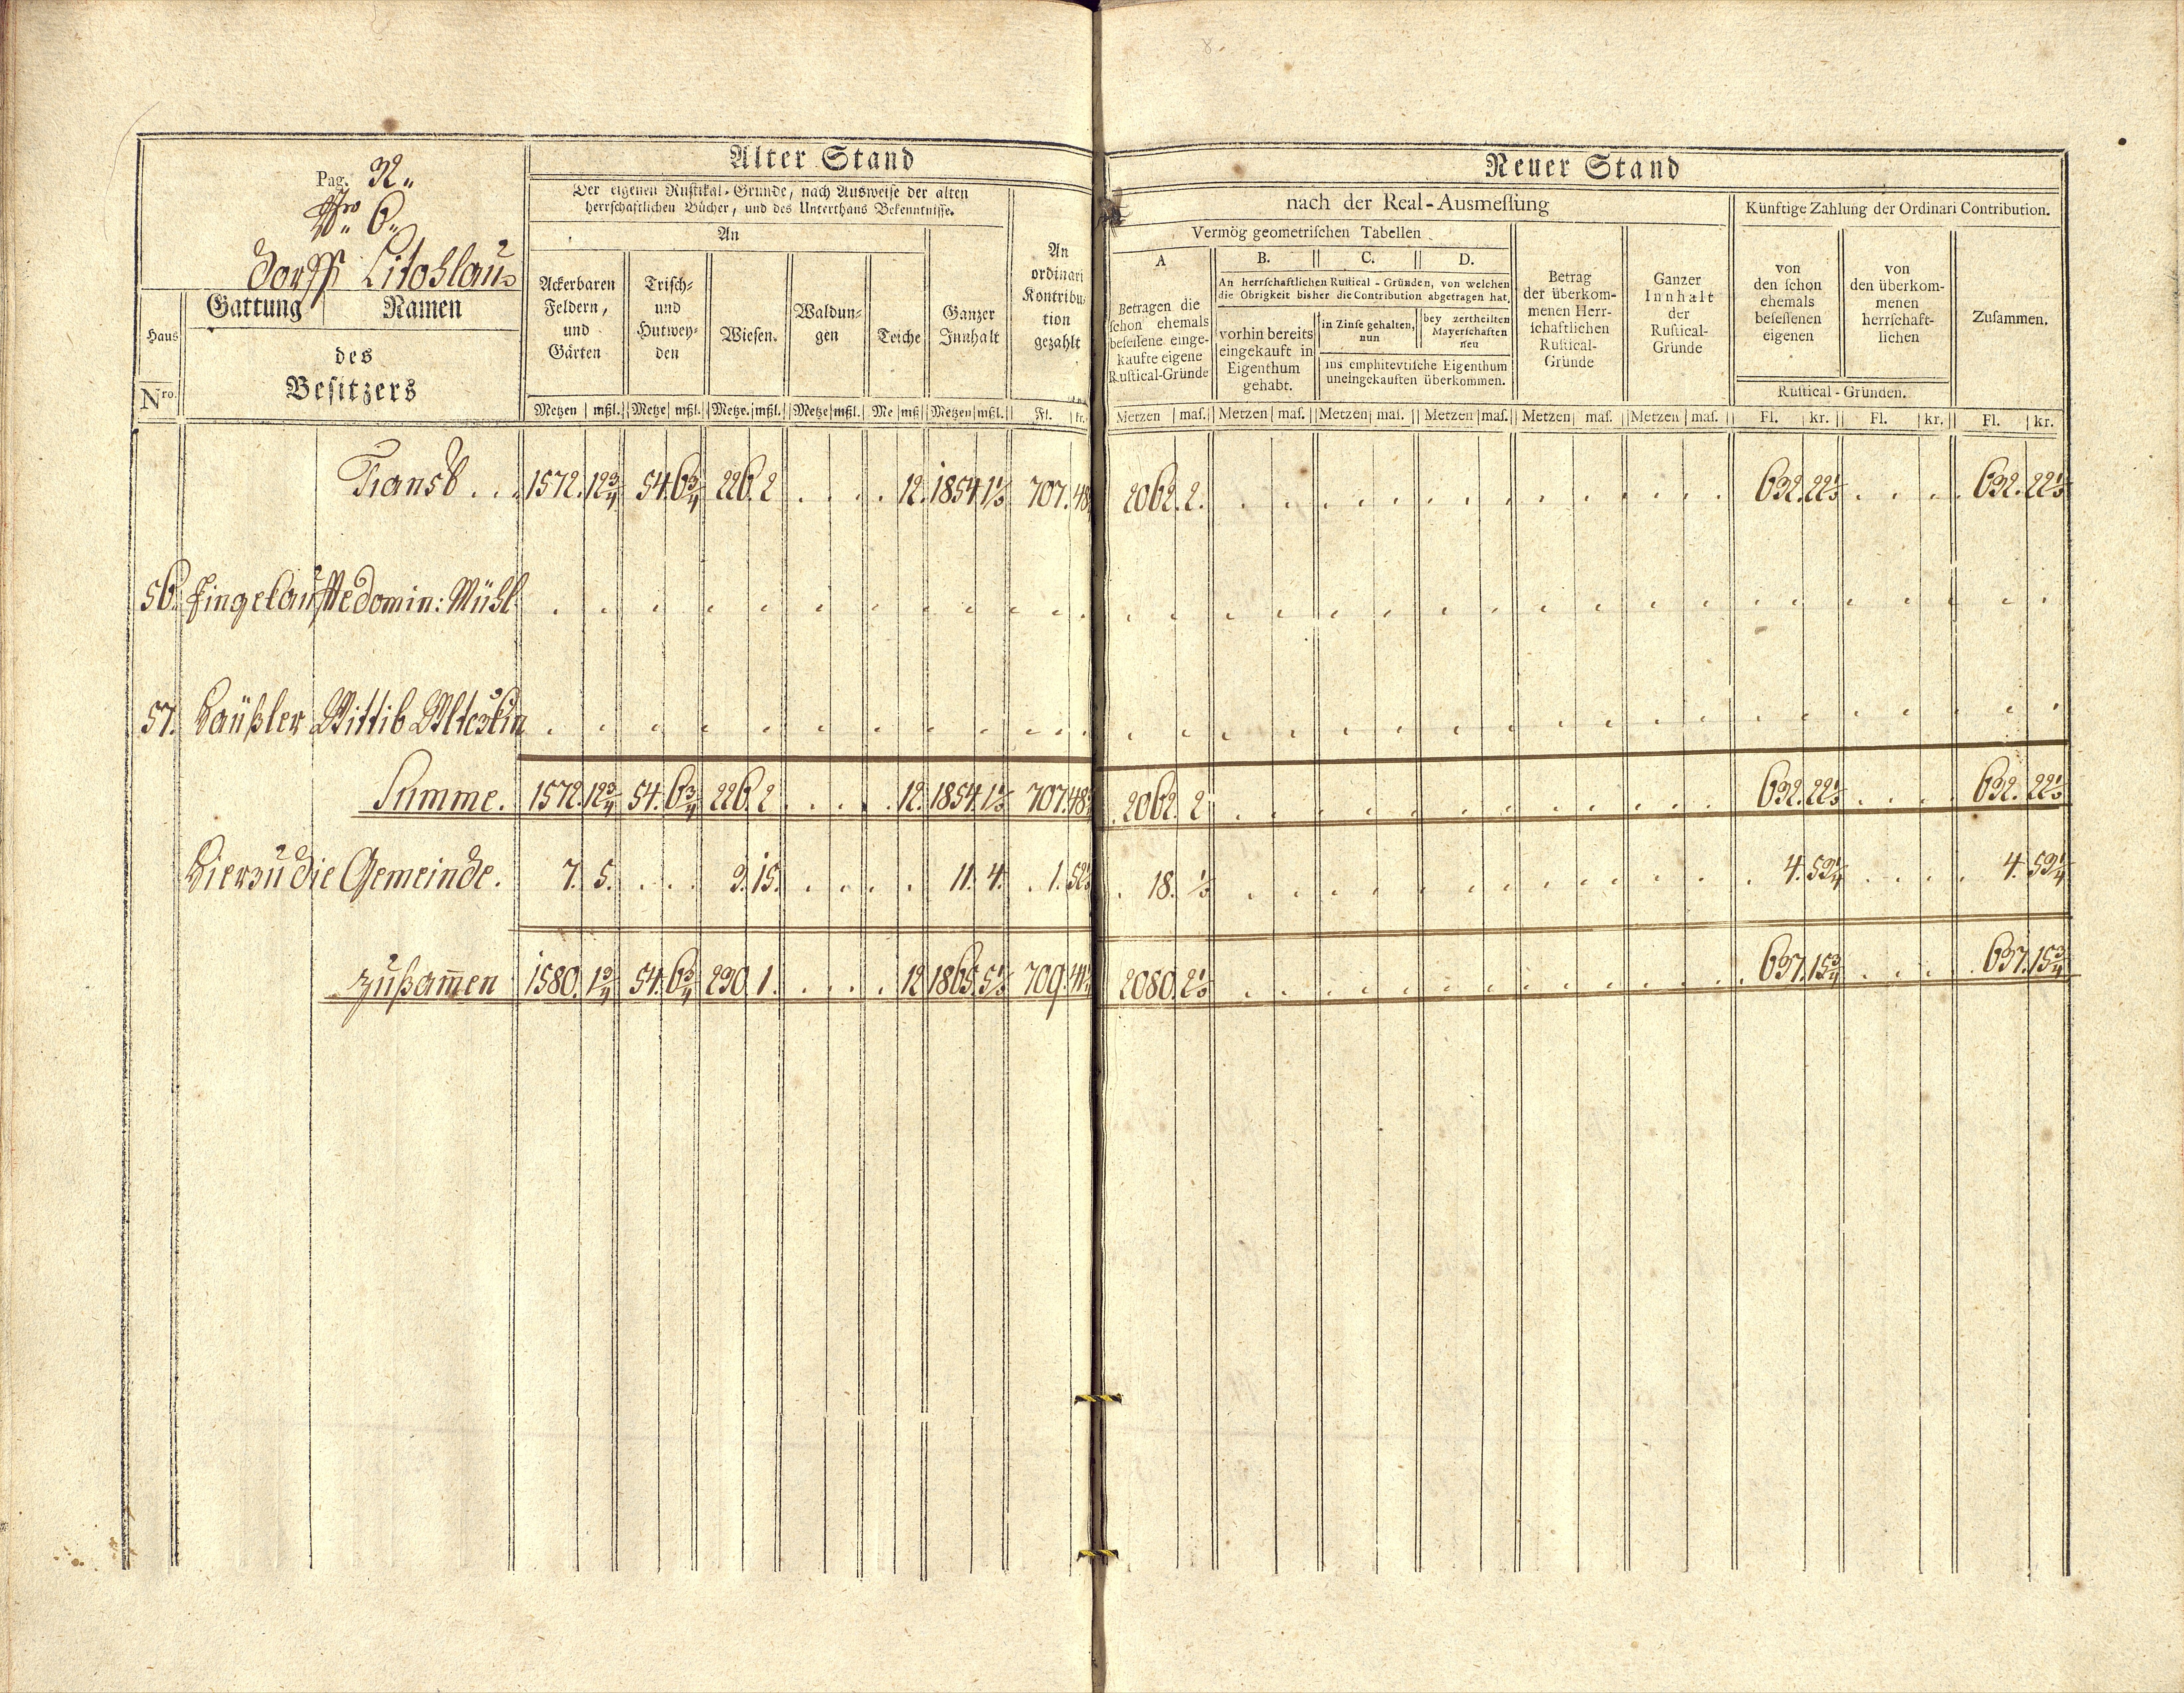 Pag. 32.
Nro 6.
Dorfs Litoslau
Alter Stand
Der eigenen Rustikal-Gründe, nach Ausweise der alten
herrschaftlichen Bücher, und des Unterthans Bekenntnisse.
An
Haus
Nro.
Gattung
Namen
des
Besitzers
Ackerbaren
Feldern,
und
Gärten
Trisch-
und
Hutwey-
den
Wiesen.
Waldun-
gen
Teiche
Ganzer
Innhalt
An
ordinari
Kontribu-
tion
gezahlt
Metzen mßl. Metze mßl. Metze. mßl. Metze mßl. Me mß Metzen mßl. Fl. kr.
Neuer Stand
nach der Real-Ausmessung
Künftige Zahlung der Ordinari Contribution.
Vermög geometrischen Tabellen
A
Betragen die
schon ehemals
besessene einge-
kaufte eigene
Rustical-Gründe
B. C. D.
An herrschaftlichen Rustical-Gründen, von welchen
die Obrigkeit bisher die Contribution abgetragen hat,
vorhin bereits
eingekauft in
Eigenthum
gehabt.
in Zinse gehalten,
nun
bey zertheilten
Mayerschaften
neu
ins emphitevtische Eigenthum
uneingekauften überkommen.
Betrag
der überkom-
menen Herr-
schaftlichen
Rustical-
Gründe
Ganzer
Innhalt
der
Rustical-
Gründe
von
den schon
ehemals
besessenen
eigenen
von
den überkom-
menen
herrschaft-
lichen
Zusammen.
Rustical-Gründen.
Metzen mas. Metzen mas. Metzen mas. Metzen mas. Metzen mas. Metzen mas. Fl. kr. Fl. kr. Fl. kr.
Transb... 1572. 12 3/4 54. 6 3/4 226. 2 . . . . 12. 1854. 1 1/2 707. 48 2062. 2. 632. 22 1/2 632. 22 1/2
56. Eingekauffte domin: Mühl
57. Häußler Wittib
Summe. 1572. 12 3/4 54. 6 3/4 226. 2 . . . . 12. 1854. 1 1/2 707. 48 2062. 2 632. 22 1/2 632. 22 1/2
Hierzu die Gemeinde. 7. 5. . . . 3. 15. . . . . 11. 4. 1. 52 18. 1/2 4. 53 1/4 4. 53 1/4
zußam̅en 1580. 1 3/4 54. 6 3/4 230. 1. . . . . 12 1865. 5 1/2 709. 41 2080. 2 1/2 637. 15 3/4 637. 15 3/4